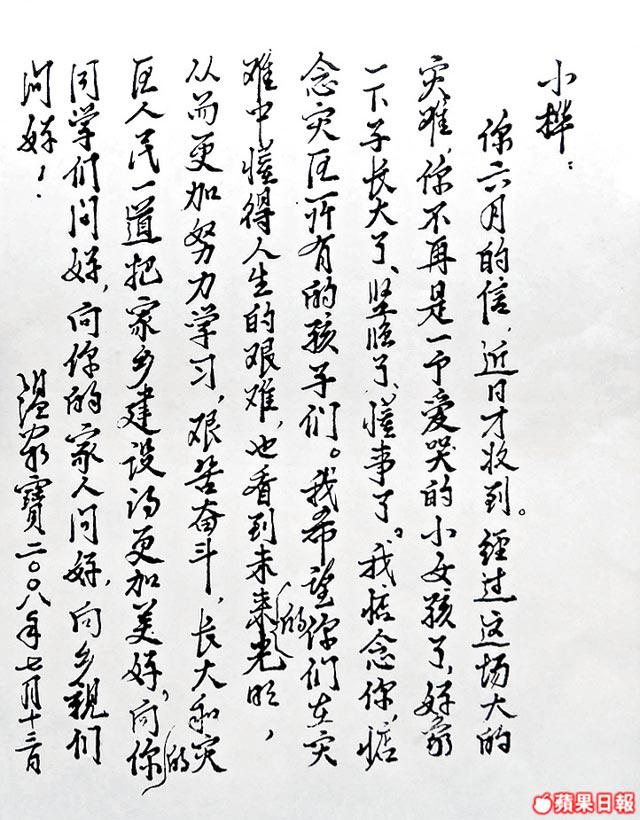 小桦：
你六月的信，近日才收到。经过这场大的
灾难，你不再是一个爱哭的小女孩了，好象
一下子长大了、坚强了、懂事了。我惦念你，惦
念灾区所有的孩子们。我希望你们在灾
难中懂得人生的艰难，也看到未来的光明，
从而更加努力学习，艰苦奋斗，长大和灾
区人民一道把家乡建设得更加美好。向你的
同学们问好，向你的家人问好，向乡亲们
问好！
温家寶 二〇〇八年七月十三日
蘋果日報